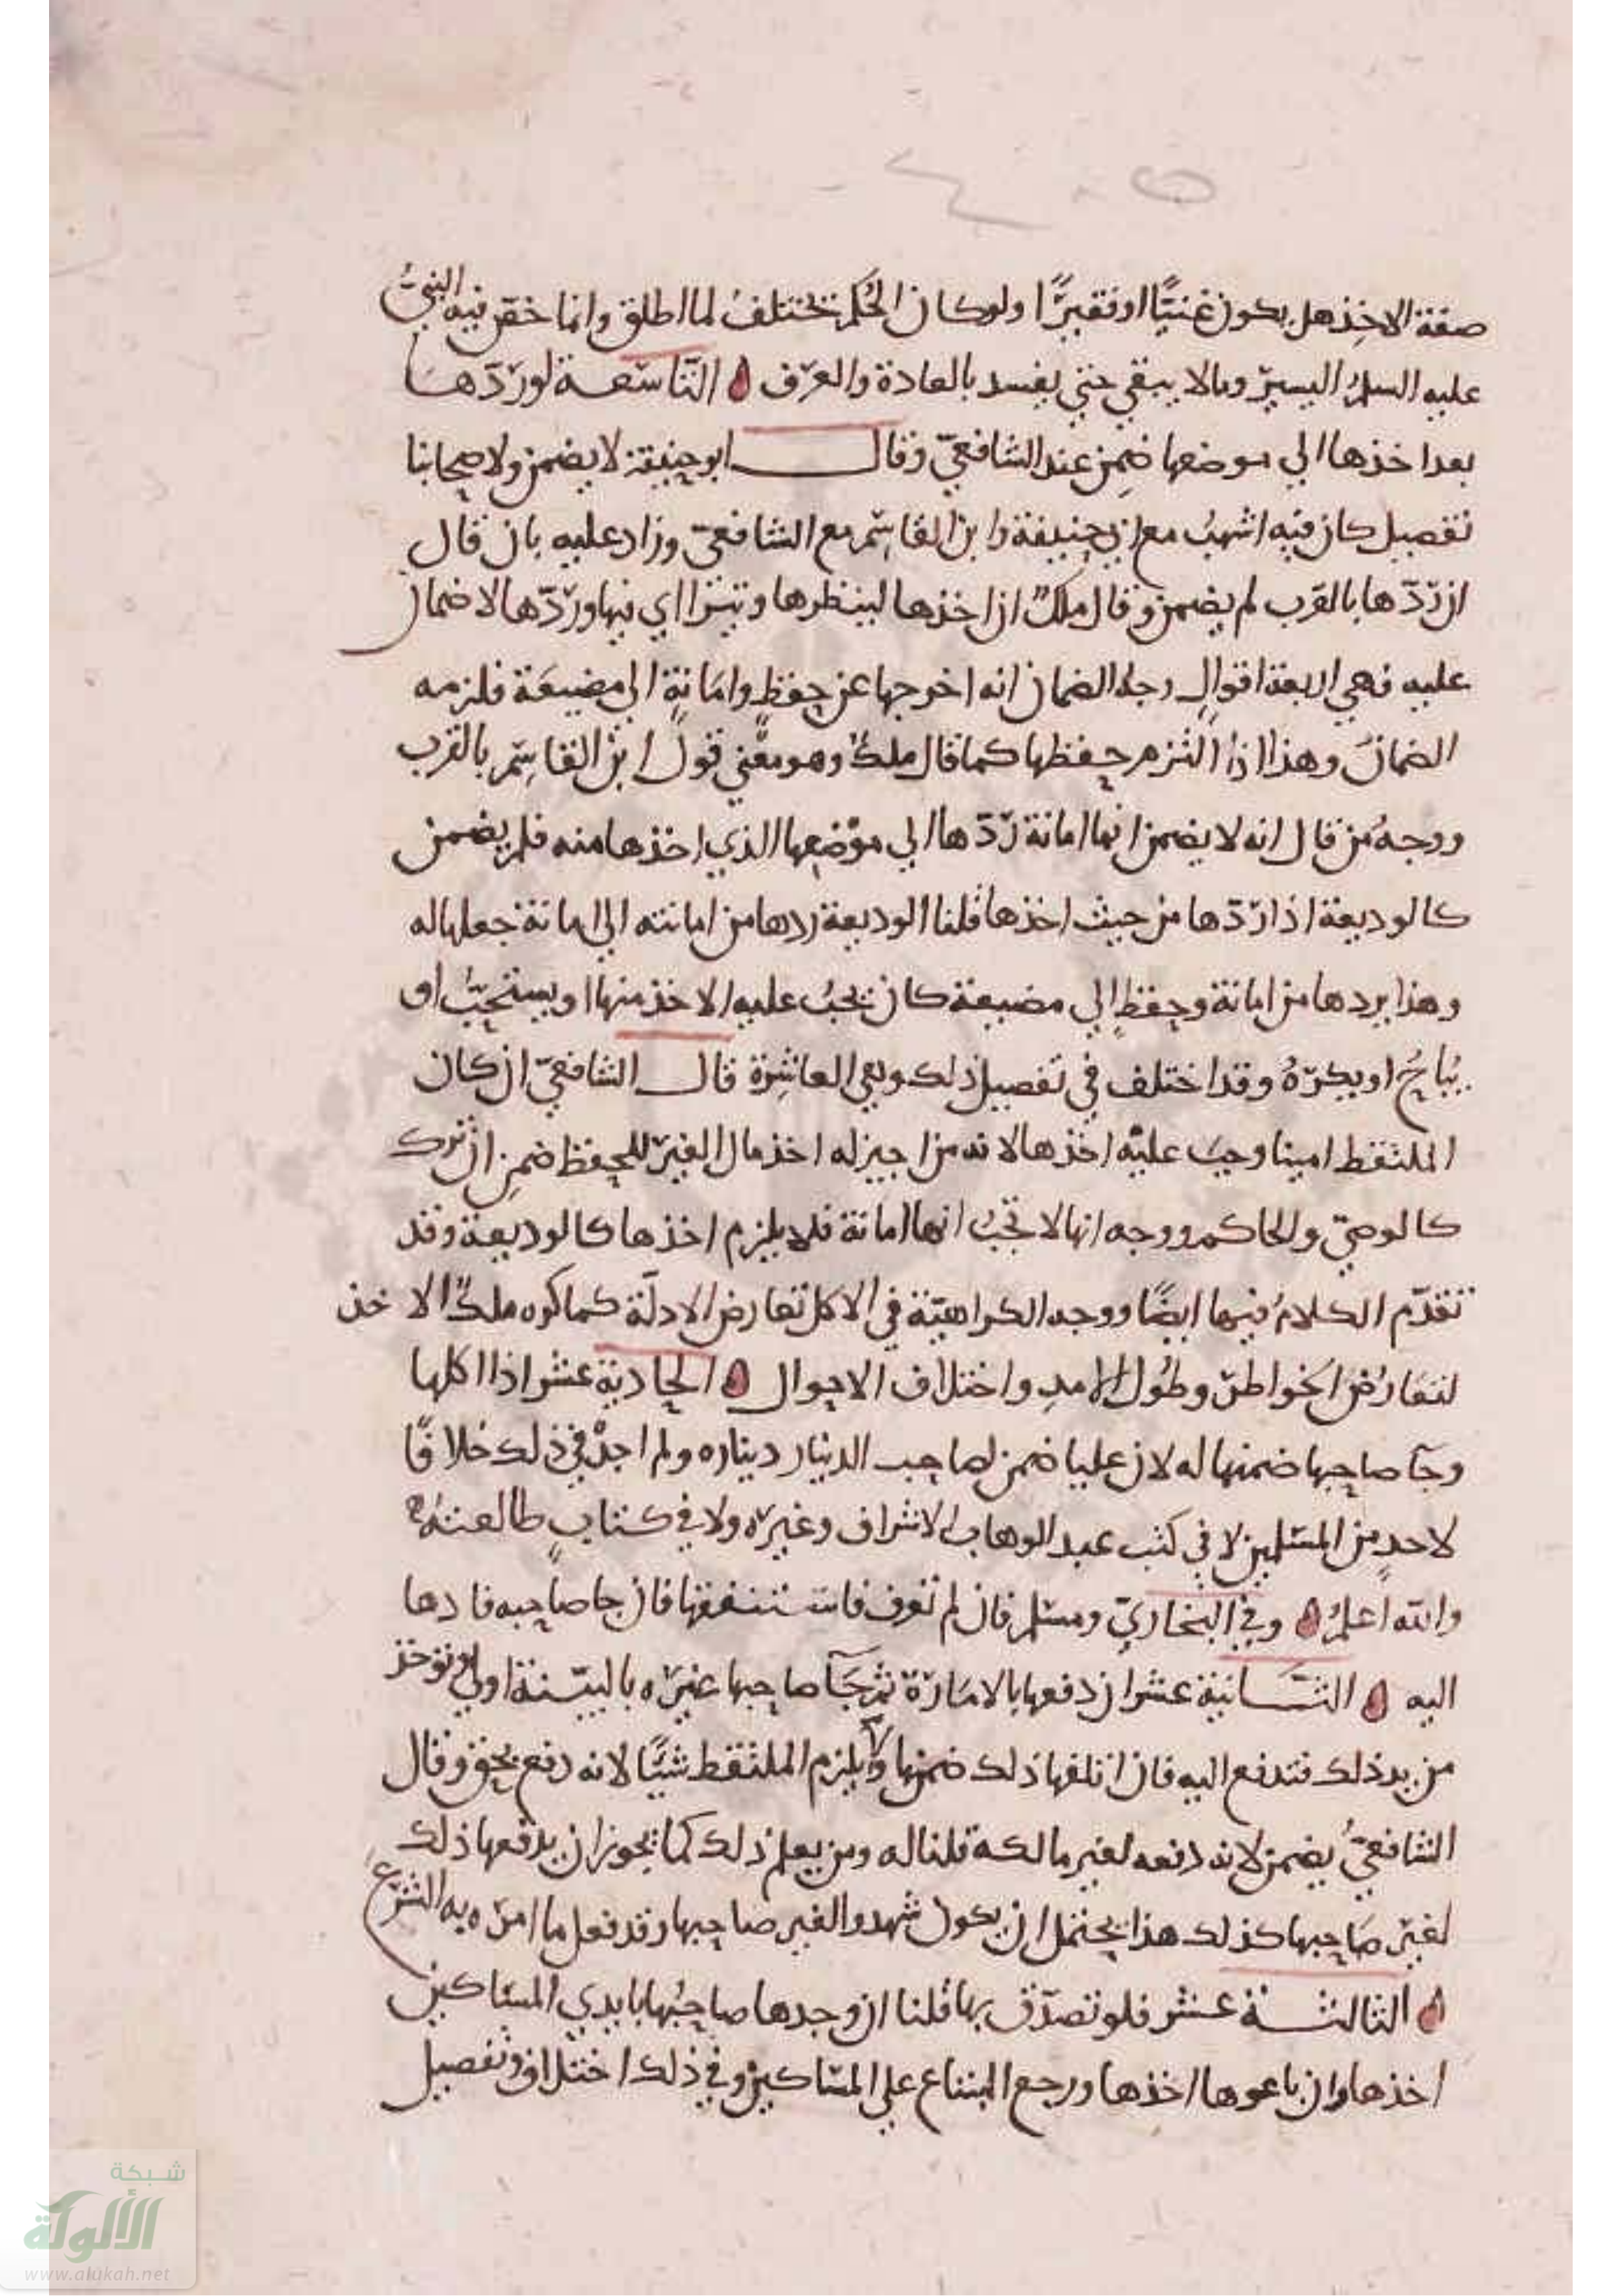 صفة الاخذ هل يكون غنيًّا او فقيرًا ولو كان الحكم يختلف لما اطلق وانما خص فيه النبيّ
عليه السلم اليسير ومالا يبقي حتي يفسد بالعادة والعرف التاسعة لو ردّها
بعد اخذها الي موضعها ضمن عند الشافعيّ وقال ابو حنيفة لا يضمن ولاصحابنا
تفصيل كان فيه اشهب مع ابي حنيفة وابن القاسم مع الشافعيّ وزاد عليه بان قال
ان ردّها بالقرب لم يضمن وقال ملك ان اخذها لينظرها ويتراأي فيها وردّها لا ضمان
عليه فهي اربعة اقوال وجه الضمان انه اخرجها عن حفظ وامانة الي مضيعة فلزمه
الضمان وهذا اذا التزم حفظها كما قال ملك وهو معني قول ابن القاسم بالقرب
ووجه من قال انه لا يضمن انها امانة ردّها الي موضعها الذي اخذها منه فلم يضمن
كالوديعة اذا ردّها من حيث اخذها قلنا الوديعة ردها من امانته الي امانة جعلها له
وهذا يردها من امانة وحفظ الي مضيعة كان يجب عليه الاخذ منها او يستحبّ او
يباح او يكره وقد اختلف في تفصيل ذلك وهي العاشرة قال الشافعيّ ان كان
الملتقط امينا وجب عليه اخذها لانه من اجيز له اخذ مال الغير للحفظ ضمن ان ترك
كالوصيّ والحاكم ووجه انها لا تجب انها امانة فلا يلزم اخذها كالوديعة وقد
تقدّم الكلام فيها ايضًا ووجه الكراهيّة في الاكل تعارض الادلّة كما كره ملك الاخذ
لتعارض الخواطر وطول الامد واختلاف الاحوال الحادية عشر اذا اكلها
وجآ صاحبها ضمنها له لان عليا ضمن لصاحب الدينار ديناره ولم اجد في ذلك خلافًا
لاحد من المسلمين لا في كتب عبد الوهاب الاشراف وغيره ولا في كتاب طالعته
والله اعلم وفي البخاريّ ومسلم فان لم تعرف فاستنفقها فان جا صاحبه فادها
اليه الثانية عشر ان دفعها بالامارة ثم جآ صاحبها غيره بالبيّنة اولي وتوخذ
من يد ذلك فتدفع اليه فان اتلفها ذلك ضمنها ولا يلزم الملتقط شيًا لانه دفع بحق وقال
الشافعيّ يضمن لانه دفعه لغير مالكه قلنا له ومن يعلم ذلك كما يجوز ان يدفعها ذلك
لغير صاحبها كذلك هذا يحتمل ان يكون شهدوا لغير صاحبها وقد فعل ما امره به الشرع
الثالثة عشر فلو تصدّق بها قلنا ان وجدها صاحبها بايدي المساكين
اخذها وان باعوها اخذها ورجع المبتاع علي المساكين وفي ذلك اختلاف وتفصيل
شبكة
الألوكة
www.alukah.net